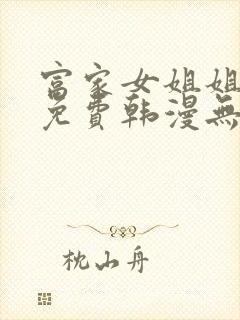 富家女姐姐
免費韩漫無
枕山舟